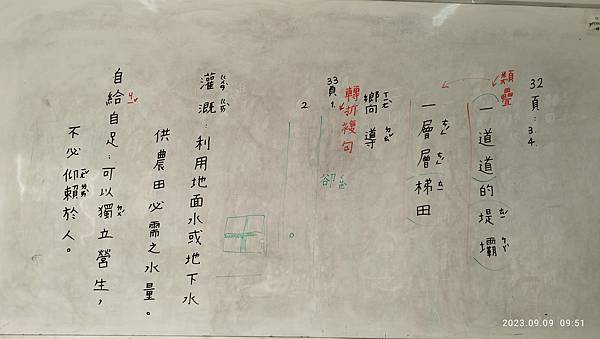 32頁:3.4.
類疊
一道道的堤壩
一層層梯田
嚮導
轉折複句
33頁1.
卻
2
灌溉:利用地面水或地下水
供農田必需之水量。
自給自足:可以獨立營生,
不必仰賴於人。
2023.09.09 09:51